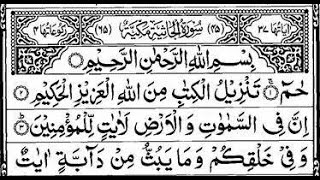 اٰیَاتُهَا ٣٧ (٤٥) سُوْرَةُ الْجَاثِیَةِ مَكِّیَّةٌ (٦٥) رُكُوْعَاتُهَا ٤
بِسْمِ اللهِ الرَّحْمٰنِ الرَّحِیْمِ
حٰمٓ ۚ تَنْزِیْلُ الْكِتٰبِ مِنَ اللهِ الْعَزِیْزِ الْحَكِیْمِ
اِنَّ فِی السَّمٰوٰتِ وَ الْاَرْضِ لَاٰیٰتٍ لِّلْمُؤْمِنِیْنَ
وَ فِیْ خَلْقِكُمْ وَ مَا یَبُثُّ مِنْ دَآبَّةٍ اٰیٰتٌ